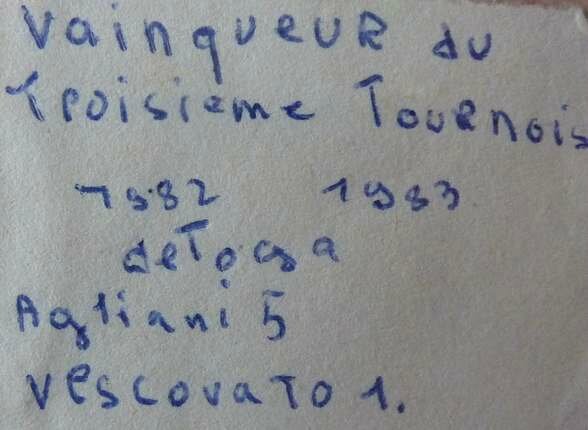 Vainqueur du
Troisieme Tournois
1982 1983
de Toga
Agliani 5
Vescovato 1.